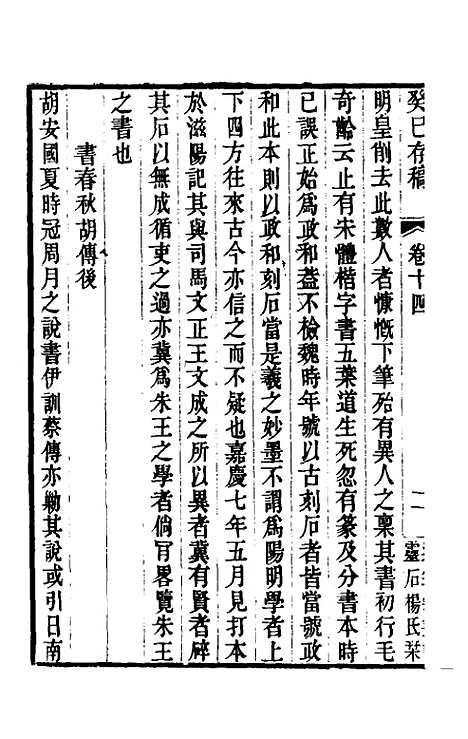 癸巳存稿 卷十四 二 靈石楊氏栞
明皇削去此數人者慷慨下筆殆有異人之稟其書初行毛
奇齡云止有未體楷字書五葉道生死忽有篆及分書本時
已誤正始為政和葢不檢魏時年號以古刻石者皆當號政
和此本則以政和刻石當是羲之妙墨不謂為陽明學者上
下四方往來古今亦信之而不疑也嘉慶七年五月見打本
於滋陽記其與司馬文正王文成之所以異者冀有賢者碎
其石以無成循吏之過亦冀為朱王之學者倘肎畧覽朱王
之書也
書春秋胡傳後
胡安國夏時冠周月之說書伊訓蔡傳亦勦其說或引日南